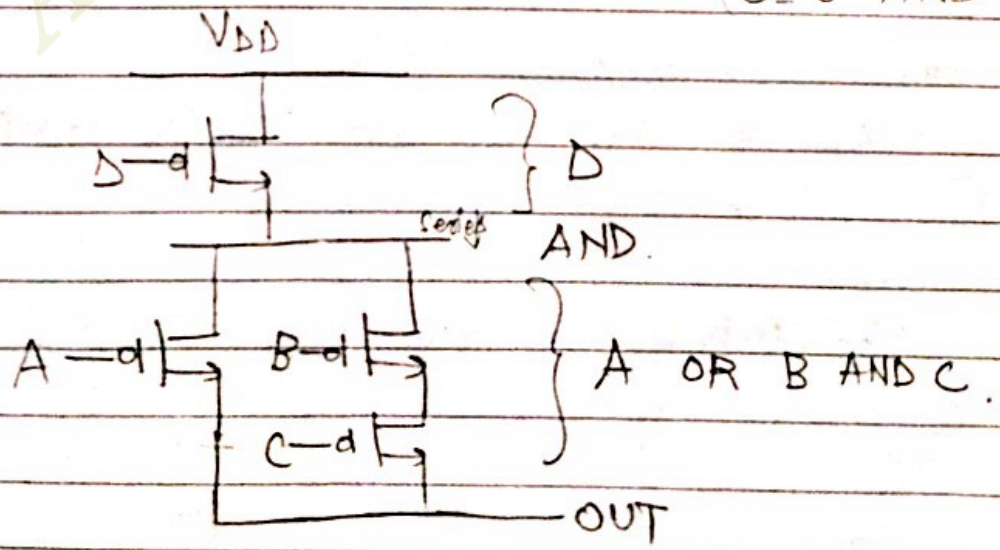 VDD
D
D
Series
AND.
A
B
A OR B AND C.
C
OUT